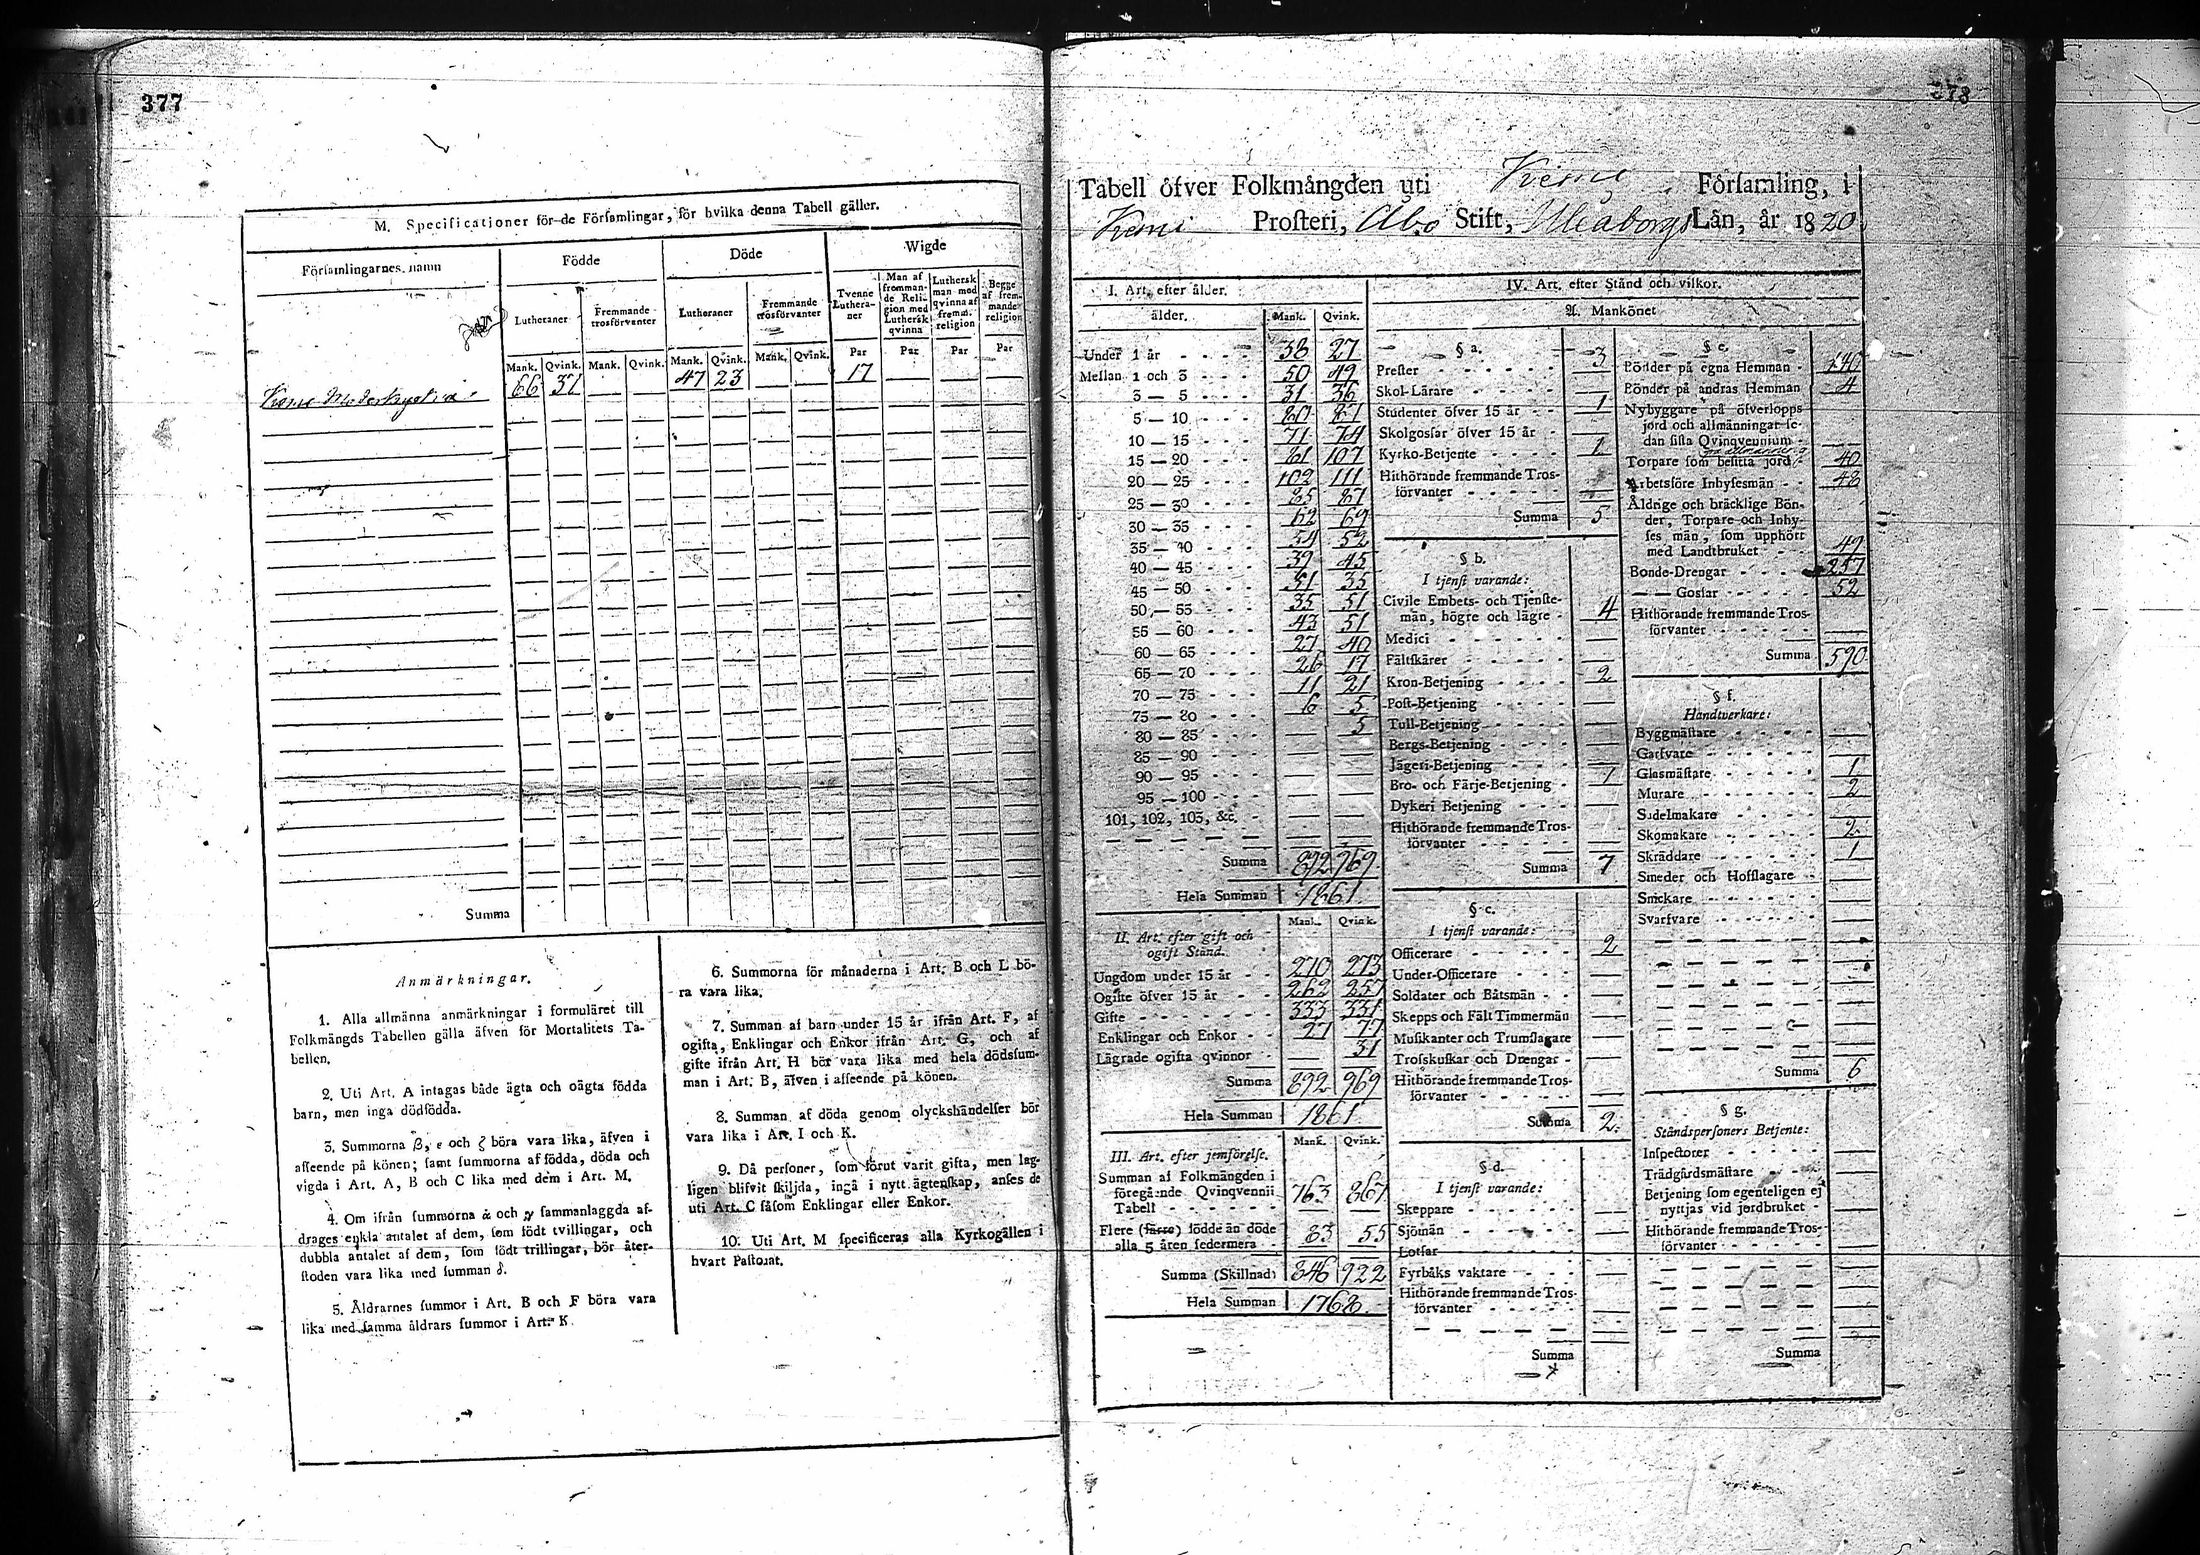 377
M. Specificationer för de Församlingar, för hvilka denna Tabell gäller.
Församlingarnes namn
Födde
Döde
Wigde
Lutheraner
Fremmande trosförvanter
Lutheraner
Fremmande trosförvanter
Tvenne Lutheraner
Man af fremmande Religion med Luthersk qvinna
Luthersk man med qvinna af fremm. religion
Begge af fremmande religion
Mank. Qvink. Mank. Qvink. Mank. Qvink. Mank. Qvink. Par Par Par Par
Kemi Moderkyrka 66 37 47 23 17
Summa
Anmärkningar.
1. Alla allmänna anmärkningar i formuläret till
Folkmängds Tabellen gälla äfven för Mortalitets Ta-
bellen.
2. Uti Art. A intagas både ägta och oägta födda
barn, men inga dödfödda.
3. Summorna β, ε och ζ böra vara lika, äfven i
afseende på könen; samt summorna af födda, döda och
vigda i Art. A, B och C lika med dem i Art. M.
4. Om ifrån summorna α och γ sammanlaggda af-
drages enkla antalet af dem, som födt tvillingar, och
dubbla antalet af dem, som födt trillingar, bör åter-
stoden vara lika med summan δ.
5. Åldrarnes summor i Art. B och F böra vara
lika med samma åldrars summor i Art. K.
6. Summorna för månaderna i Art. B och L bö-
ra vara lika.
7. Summan af barn under 15 år ifrån Art. F, af
ogifta, Enklingar och Enkor ifrån Art. G, och af
gifte ifrån Art. H bör vara lika med hela dödssum-
man i Art. B, äfven i afseende på könen.
8. Summan af döda genom olyckshändelser bör
vara lika i Art. I och K.
9. Då personer, som förut varit gifta, men lag-
ligen blifvit skiljda, ingå i nytt ägtenskap, anses de
uti Art. C såsom Enklingar eller Enkor.
10. Uti Art. M specificeras alla Kyrkogällen i
hvart Pastorat.
378
Tabell öfver Folkmängden uti Kemi Församling, i
Kemi Prosteri, Åbo Stift, Uleåborgs Län, år 1820
I. Art. efter ålder.
ålder. Mank. Qvink.
Under 1 år 38 27
Mellan 1 och 3 50 49
3 — 5 31 36
5 — 10 80 87
10 — 15 71 74
15 — 20 81 107
20 — 25 102 111
25 — 30 85 87
30 — 35 62 69
35 — 40 54 52
40 — 45 39 45
45 — 50 51 35
50 — 55 35 51
55 — 60 43 51
60 — 65 27 40
65 — 70 26 17
70 — 75 11 21
75 — 80 6 5
80 — 85 5
85 — 90
90 — 95
95 — 100
101, 102, 103, &c.
Summa 892 969
Hela Summan 1861.
Mank. Qvink.
II. Art. efter gift och
ogift Stånd.
Ungdom under 15 år 270 273
Ogifte öfver 15 år 262 257
Gifte 333 331
Enklingar och Enkor 27 77
Lägrade ogifta qvinnor 31
Summa 892 969
Hela Summan 1861.
Mank. Qvink.
III. Art. efter jemförelse.
Summan af Folkmängden i
föregående Qvinqvennii
Tabell 763 867
Flere (färre) födde än döde
alla 5 åren sedermera 83 55
Summa (Skillnad) 846 922
Hela Summan 1768
IV. Art. efter Stånd och vilkor.
A. Mankönet
§ a.
Prester 3
Skol-Lärare
Studenter öfver 15 år 1
Skolgossar öfver 15 år
Kyrko-Betjente 1
Hithörande fremmande Tros-
förvanter
Summa 5
§ b.
I tjenst varande:
Civile Embets- och Tjenste-
män, högre och lägre 4
Medici
Fältskärer
Kron-Betjening 2
Post-Betjening
Tull-Betjening
Bergs-Betjening
Jägeri-Betjening
Bro- och Färje-Betjening 1
Dykeri Betjening
Hithörande fremmande Tros-
förvanter
Summa 7
§ c.
I tjenst varande:
Officerare 2
Under-Officerare
Soldater och Båtsmän
Skepps och Fält Timmermän
Musikanter och Trumslagare
Trosskuskar och Drengar
Hithörande fremmande Tros-
förvanter
Summa 2.
§ d.
I tjenst varande:
Skeppare
Sjömän
Lotsar
Fyrbåks vaktare
Hithörande fremmande Tros-
förvanter
Summa
§ e.
Bönder på egna Hemman 140
Bönder på andras Hemman 4
Nybyggare på öfverlopps
jord och allmänningar se-
dan sista Qvinqvennium
Torpare som besitta jord 40
Arbetsföre Inhysesmän 48
Åldrige och bräcklige Bön-
der, Torpare och Inhy-
ses män, som upphört
med Landtbruket 49
Bonde-Drengar 257
— — Gossar 52
Hithörande fremmande Tros-
förvanter
Summa 590
§ f.
Handtverkare:
Byggmästare
Garfvare
Glasmästare 1
Murare 2
Sadelmakare
Skomakare 2
Skräddare 1
Smeder och Hofslagare
Snickare
Svarfvare
Summa 6
§ g.
Ståndspersoners Betjente:
Inspectorer
Trädgårdsmästare
Betjening som egenteligen ej
nyttjas vid jordbruket
Hithörande fremmande Tros-
förvanter
Summa